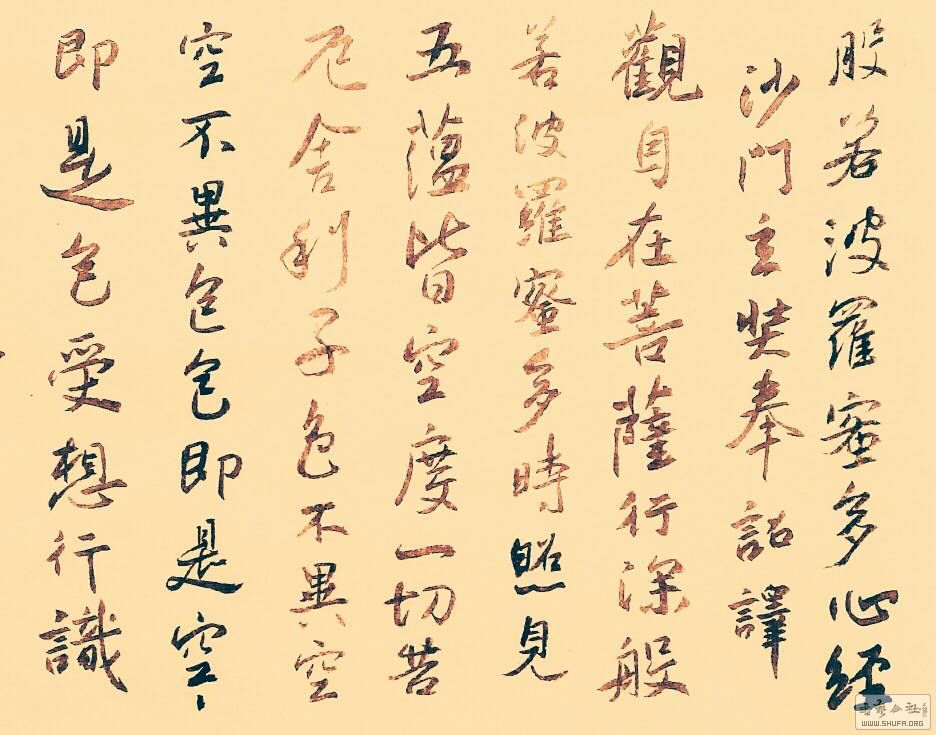 般若波羅蜜多心經
沙門玄奘奉詔譯
觀自在菩薩行深般
若波羅蜜多時照見
五蘊皆空度一切苦
厄舍利子色不異空
空不異色色即是空〻
即是色受想行識
WWW.SHUFA.ORG